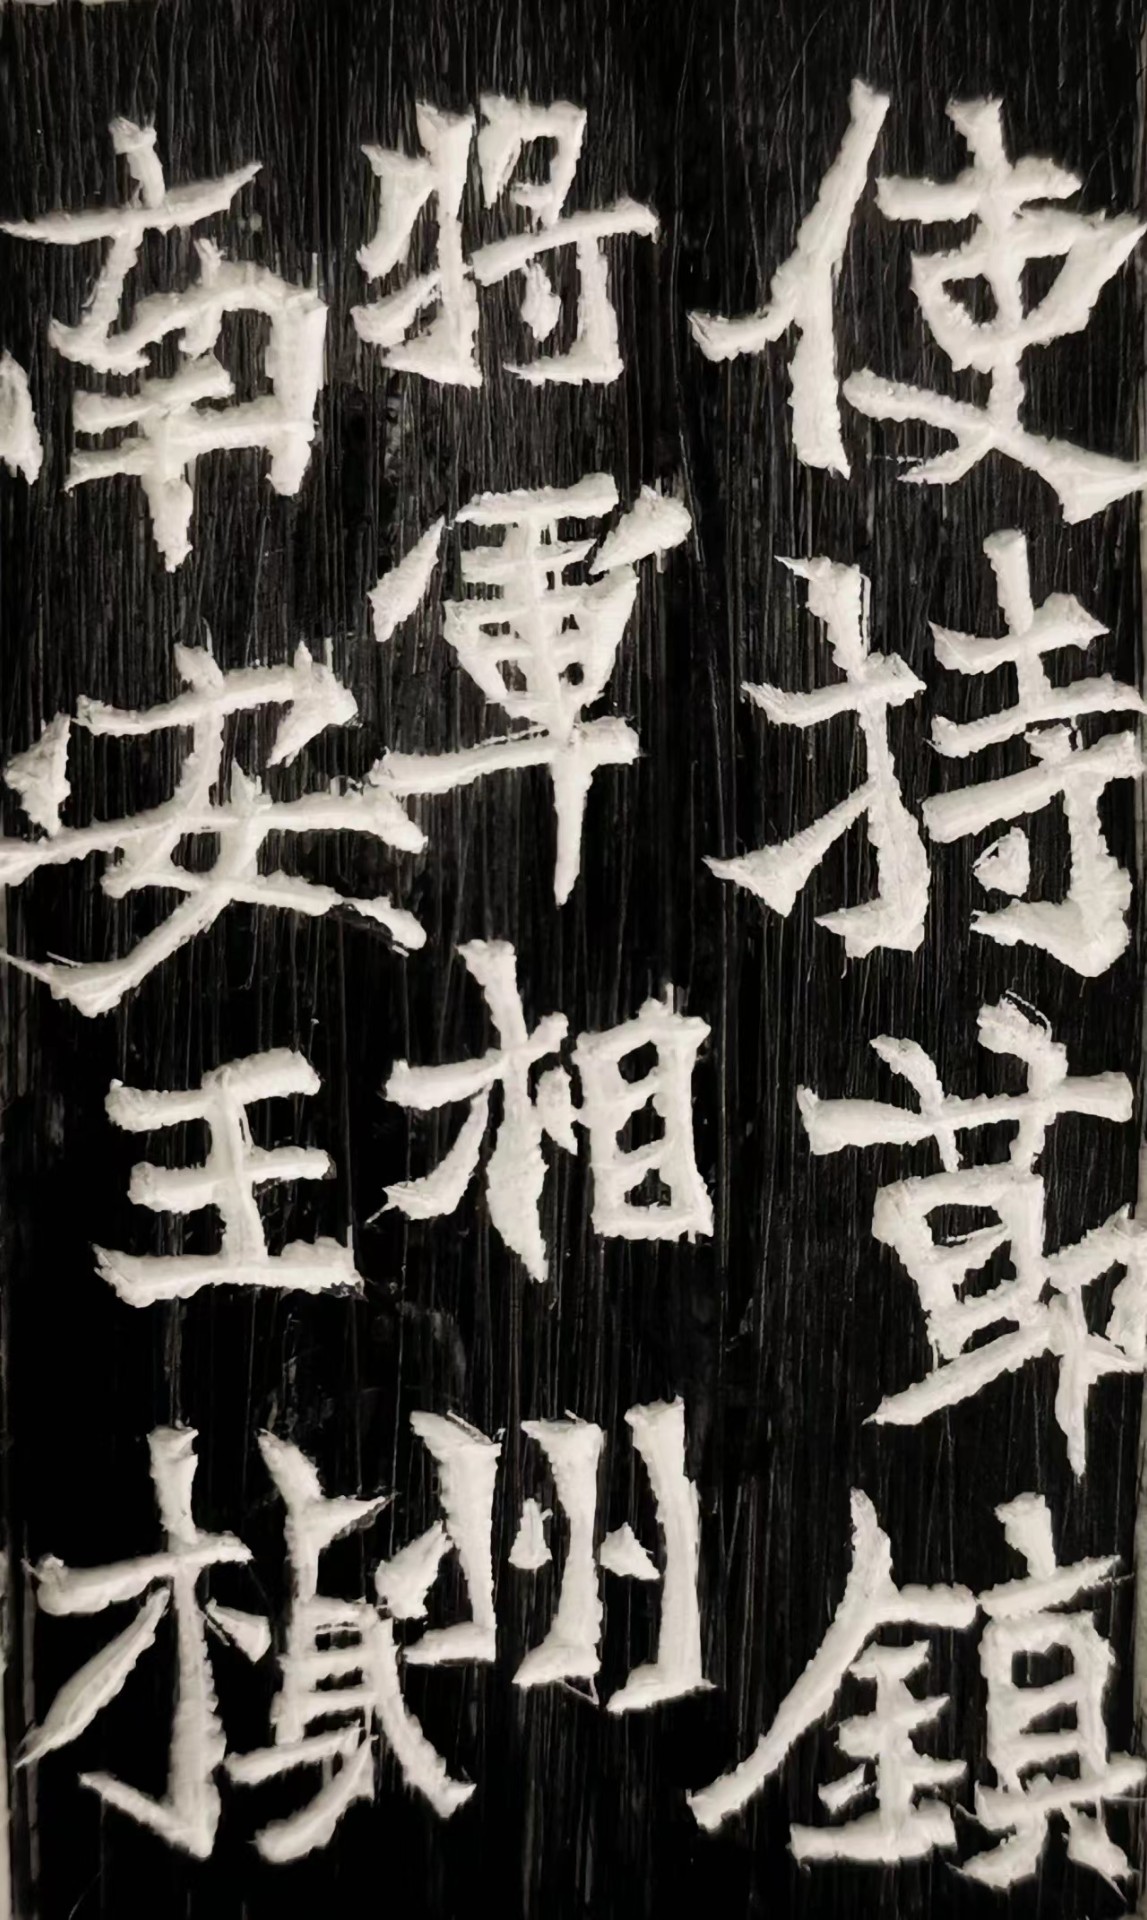 使持節鎮
將軍相州
南安王楨